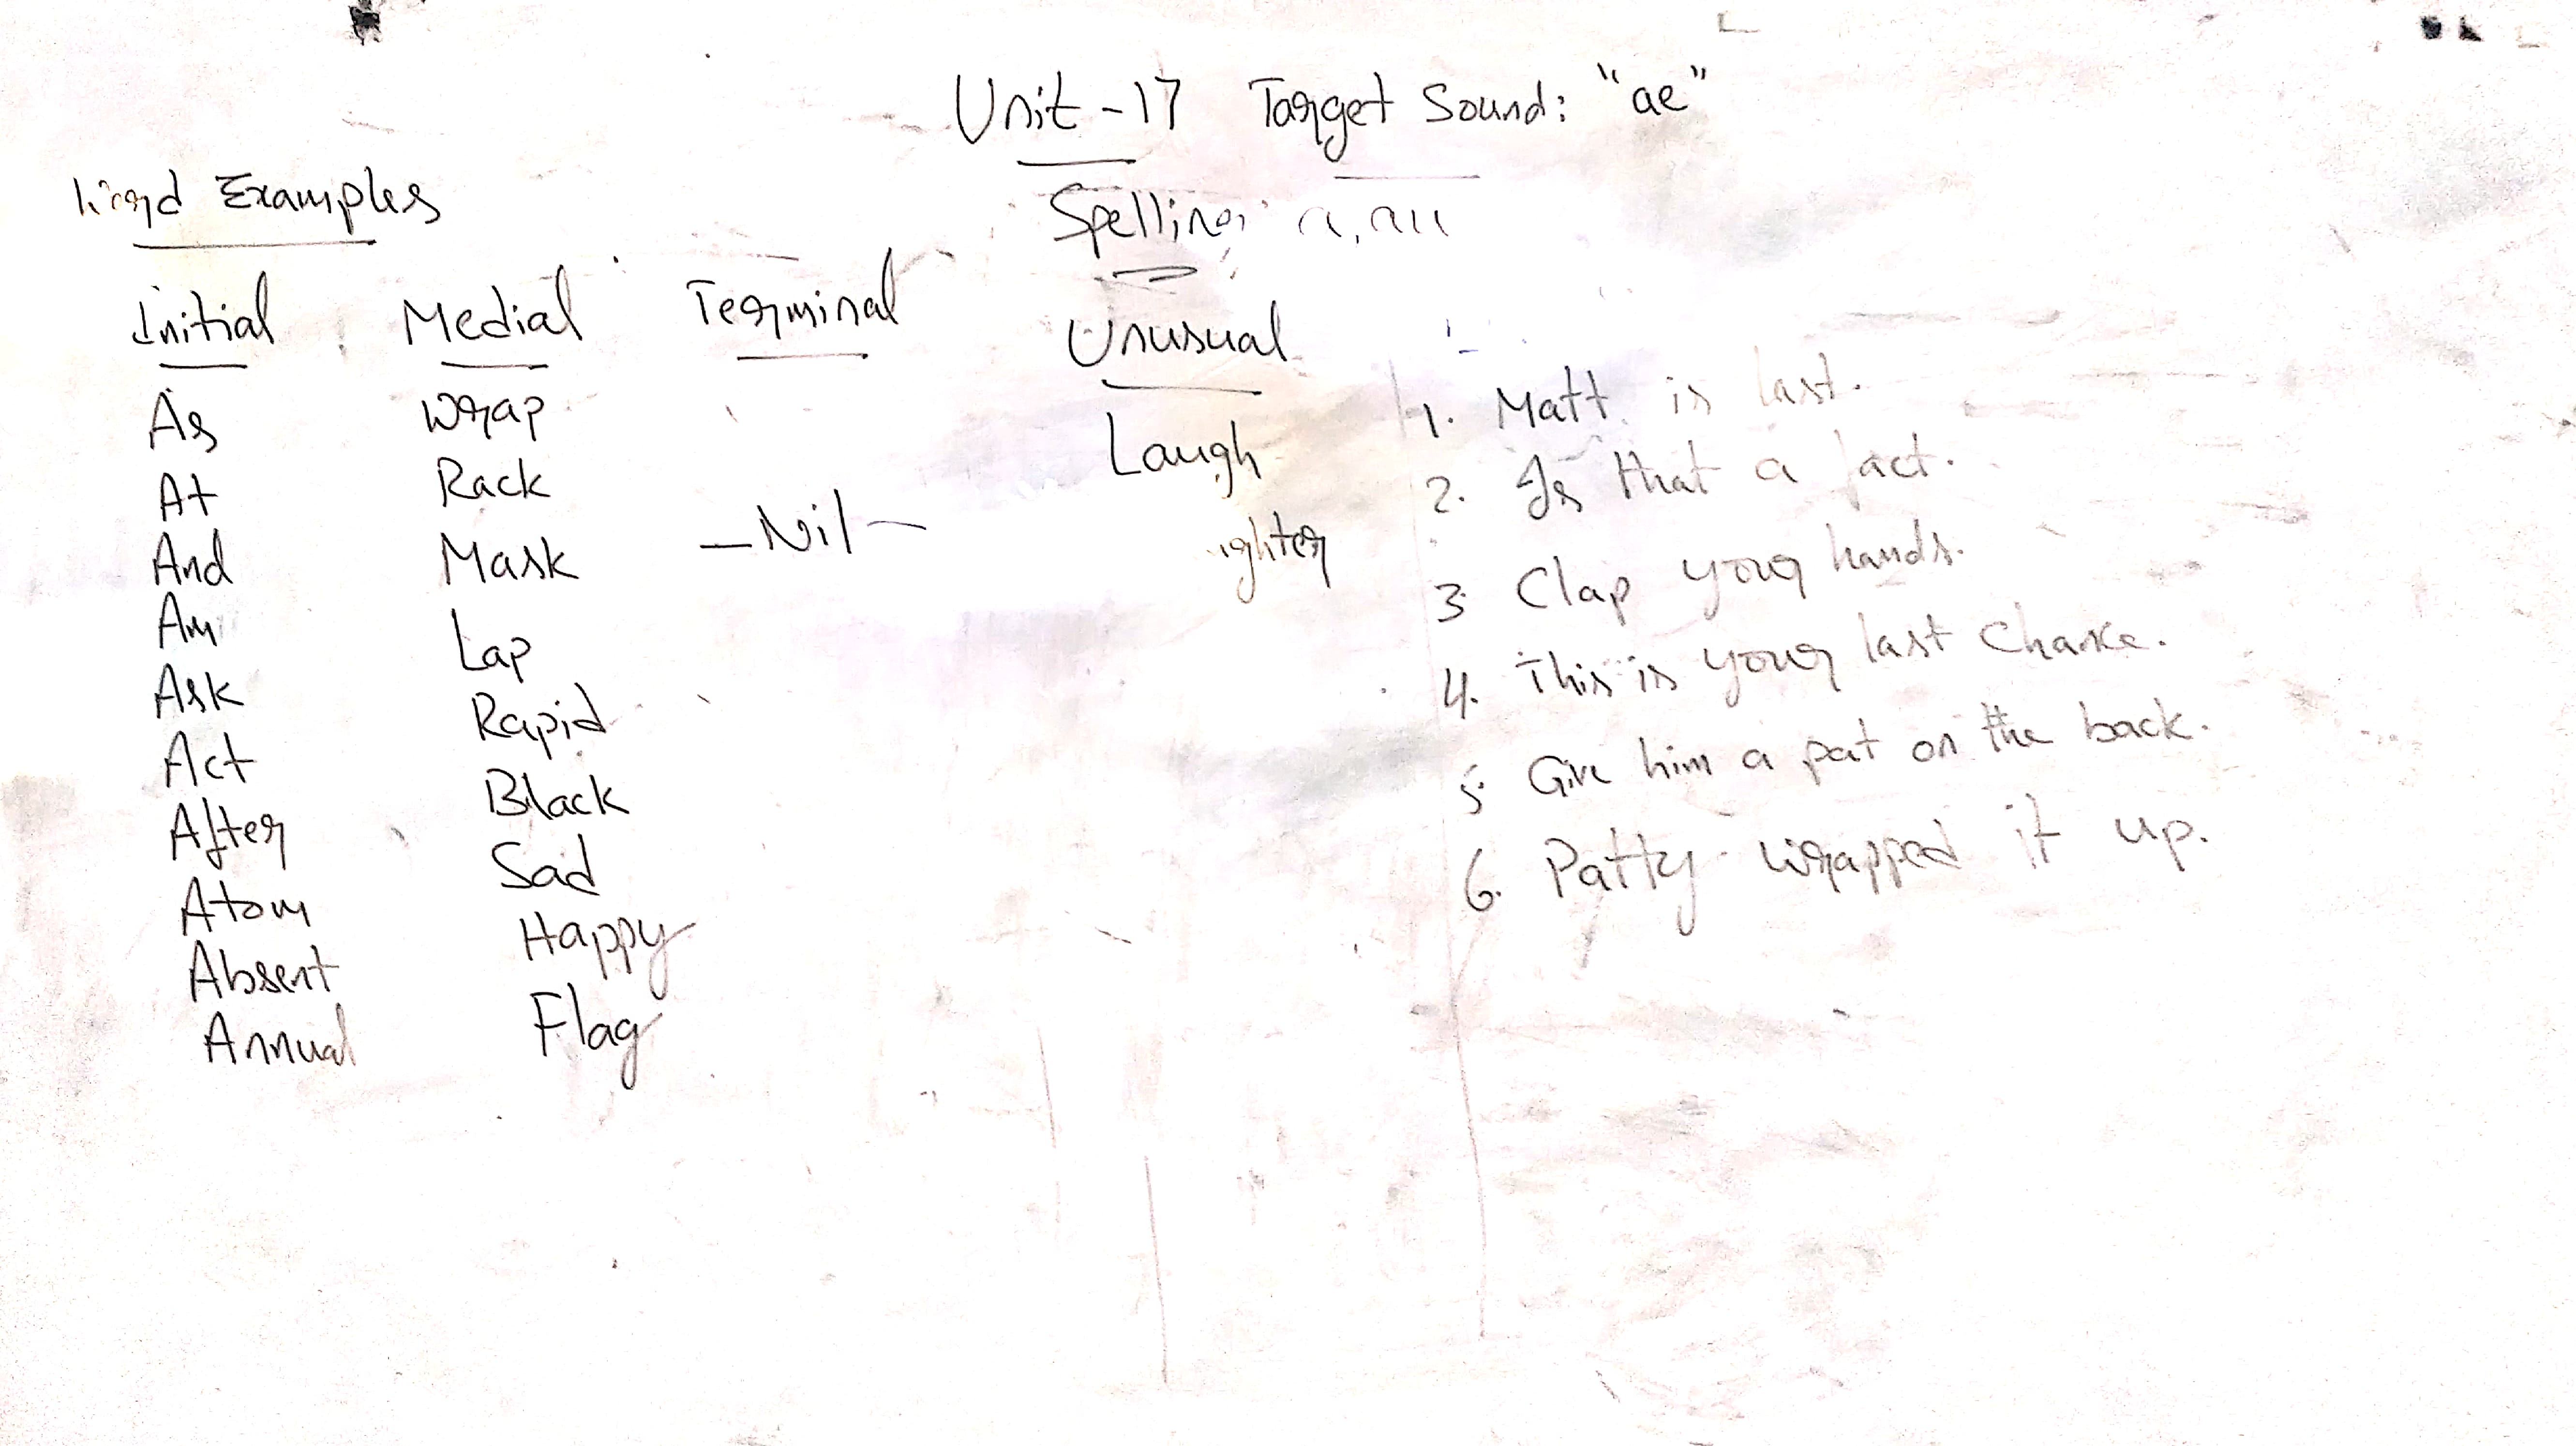 Unit-17 Target Sound: "ae"
Spelling: a, au
Word Examples
Initial Medial Terminal Unusual
As Wrap Laugh
At Rack
And Mask -Nil-
Am Lap
Ask Rapid
Act Black
After Sad
Atom Happy
Absent Flag
Annual
1. Matt is last.
2. Is that a fact.
3. Clap your hands.
4. This is your last chance.
5. Give him a pat on the back.
6. Patty wrapped it up.